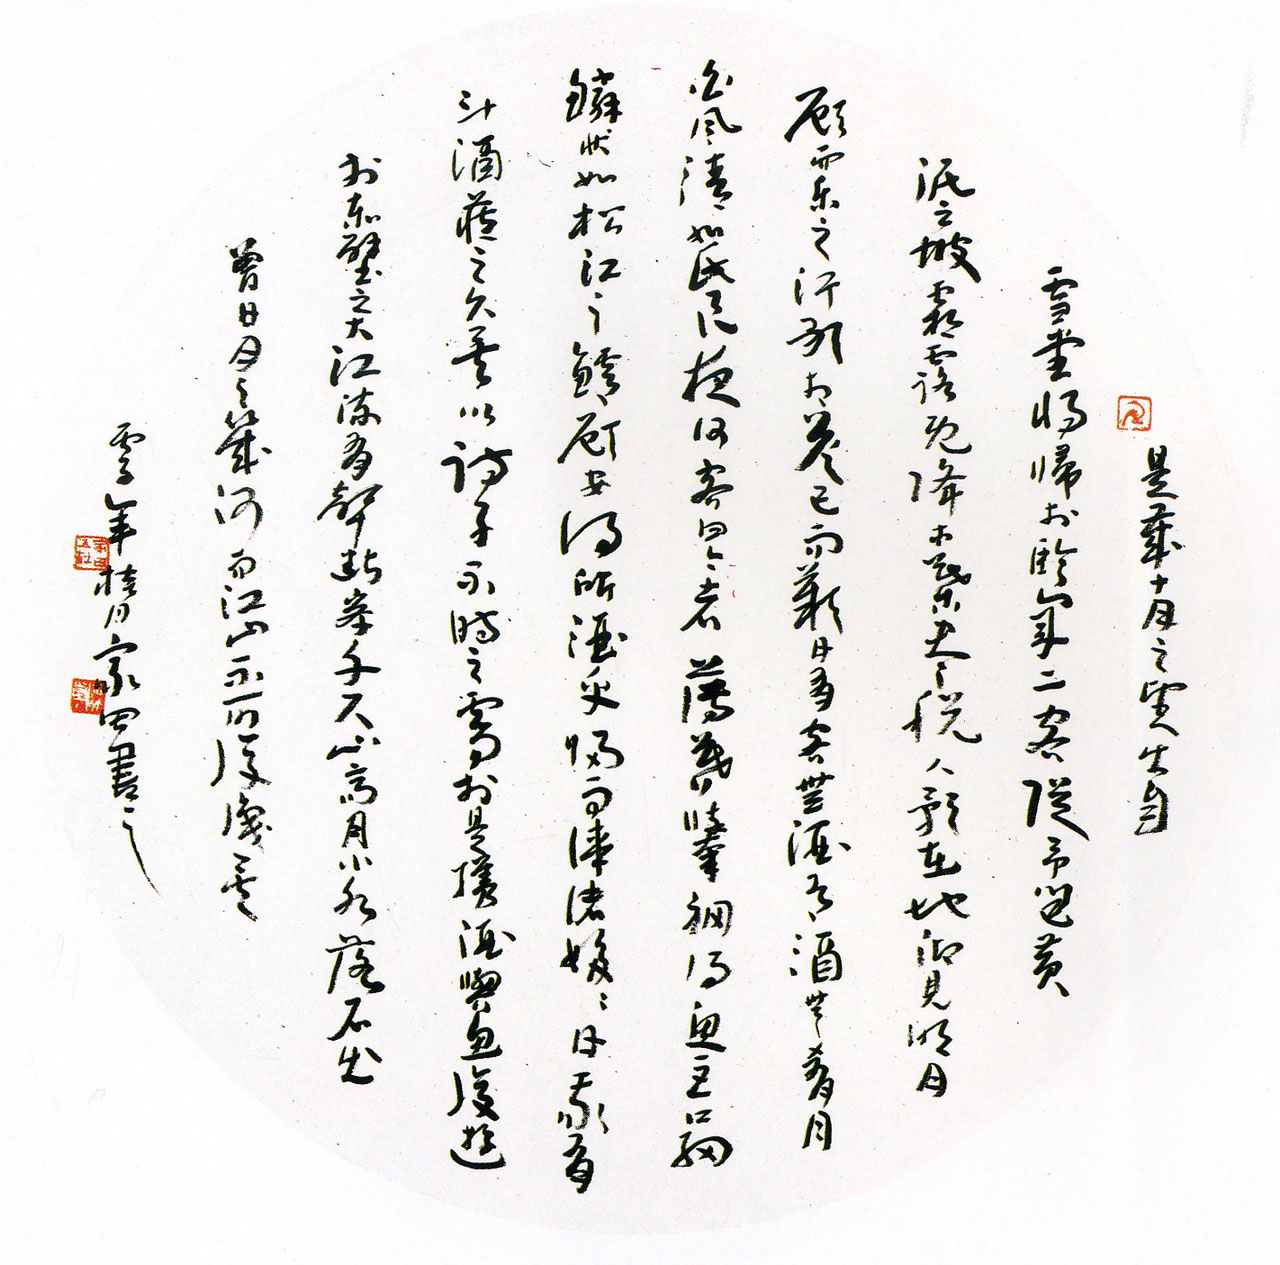 是歲十月之望步自
雪堂將歸於臨皋二客從予過黄
泥之坡霜露既降木葉盡脱人影在地仰見明月
顧而樂之行歌相答已而歎曰有客無酒有酒無肴月
白風清如此良夜何客曰今者薄暮舉網得魚巨口細
鱗狀如松江之鱸顧安得所酒乎歸而謀諸婦々曰我有
斗酒藏之久矣以待子不時之需於是攜酒與魚復遊
於赤壁之下江流有聲斷岸千尺山高月小水落石出
曾日月之歲何而江山不可復識矣
年桂月家田書之